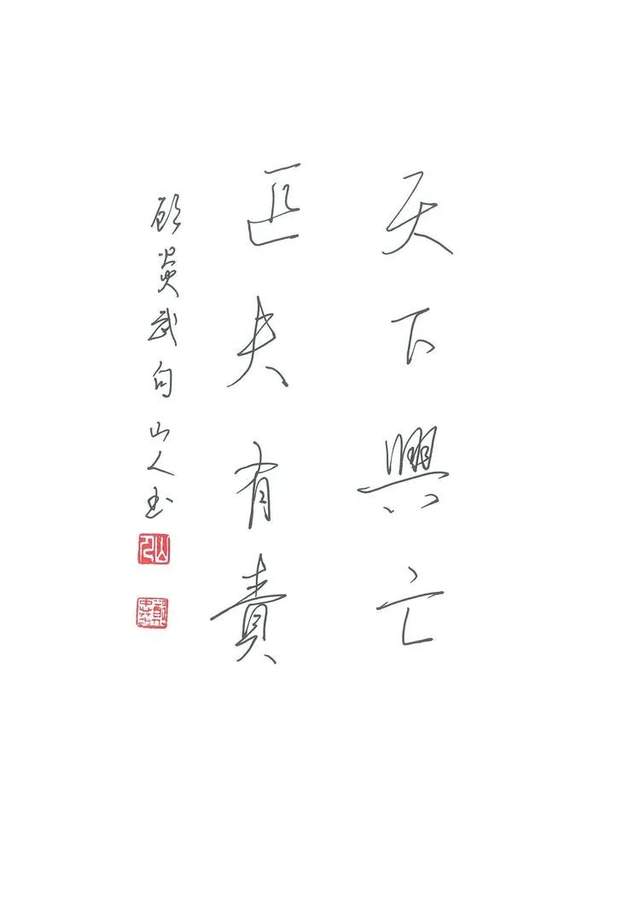 天下興亡
匹夫有責
顾炎武句 山人书